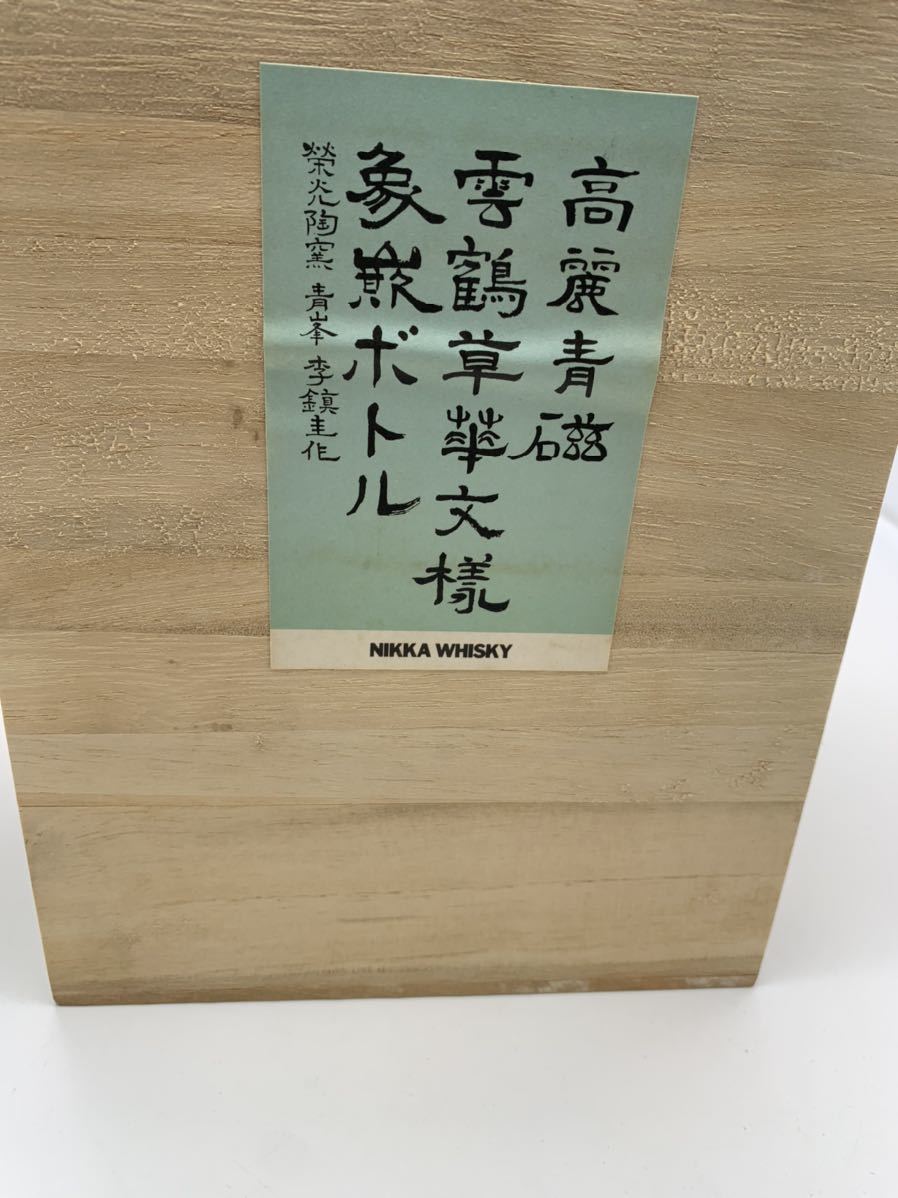 高麗青磁
雲鶴草華文様
象嵌ボトル
榮光陶窯 青峯 李鎮圭作
NIKKA WHISKY